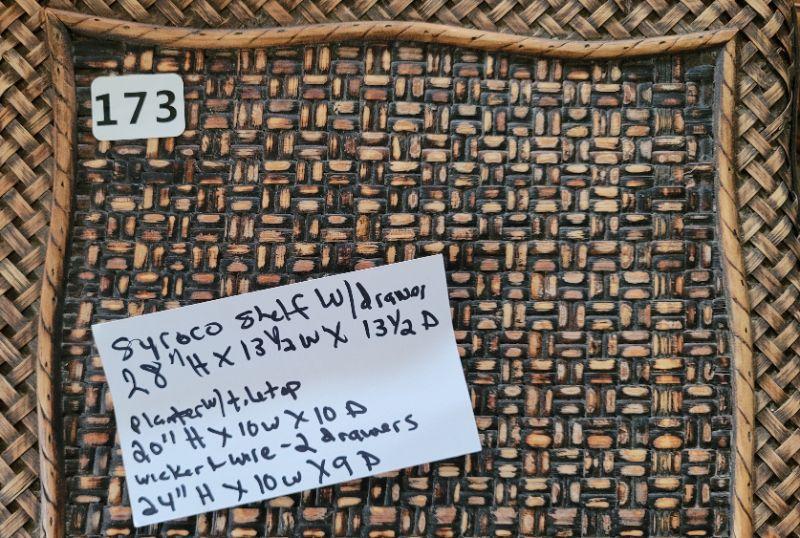 173
Syroco Shelf W/drawer
28" H X 13 1/2 W X 13 1/2 D
planter w/ tile top
20" H X 10 W X 10 D
wicker & wire - 2 drawers
24" H X 10 W X 9 D